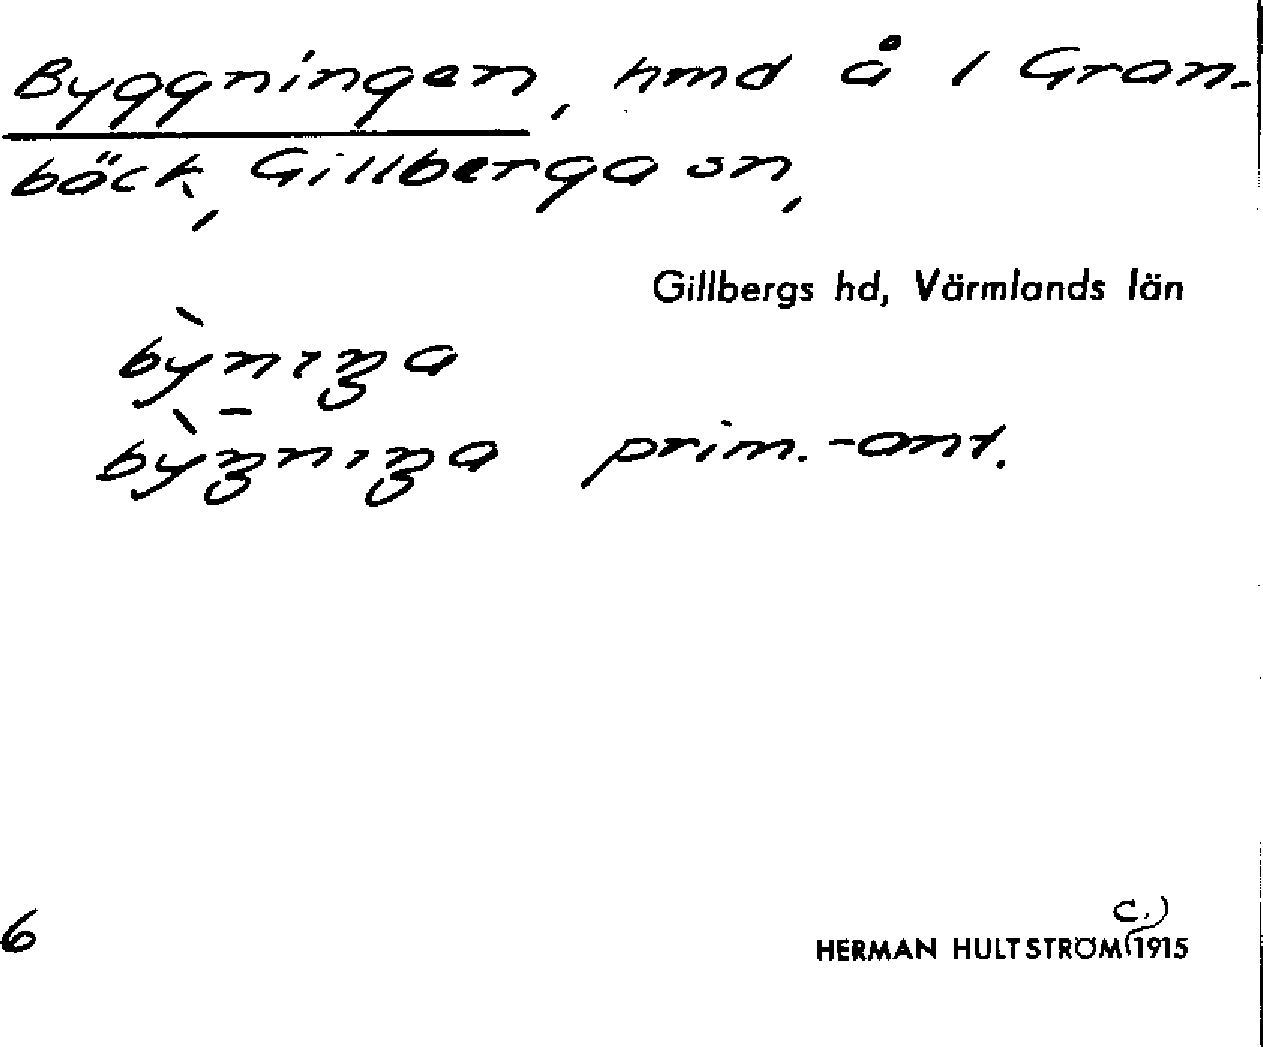 Byggningen, hmd å 1 Gran-
bäck, Gillberga sn,
Gillbergs hd, Värmlands län
bỳnɪŋa
bỳŋ̄nɪŋa prim.-ant.
6
HERMAN HULTSTRÖM (c.) 1915